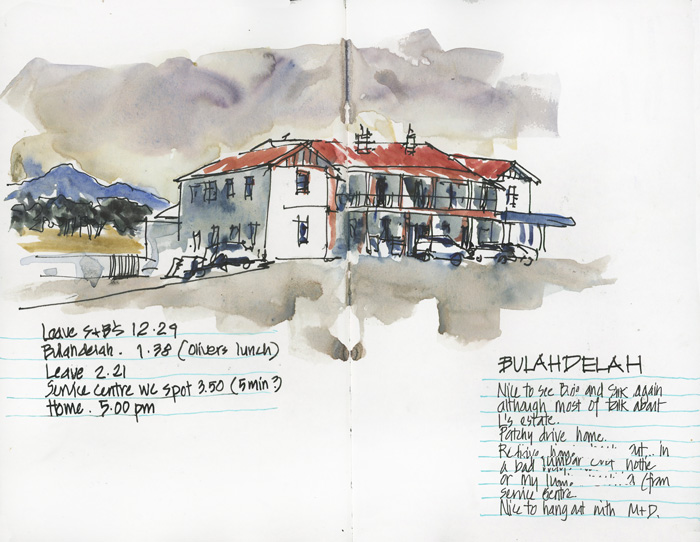 Leave S+B's 12.29
Bulahdelah. 1.38 (Olivers lunch)
Leave 2.21
Service Centre WC spot 3.50 (5min?)
Home. 5.00 pm
BULAHDELAH
Nice to see and again
although most of talk about
L's estate.
Patchy drive home.
home in
a bad
or my (from
service centre.
Nice to hang out with M+D.